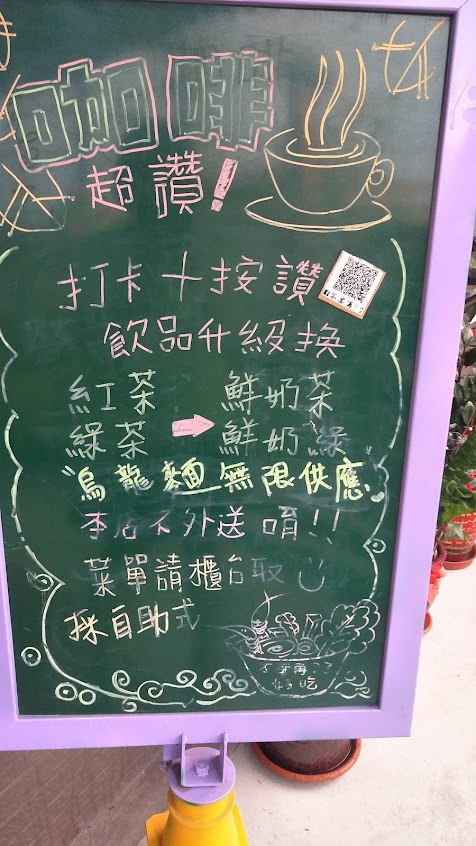 咖啡
超讚!
打卡+按讚
飲品升級換
紅茶 → 鮮奶茶
綠茶 鮮奶綠
"烏龍麵無限供應"
本店不外送唷!!
菜單請櫃台取
採自助式
好吃